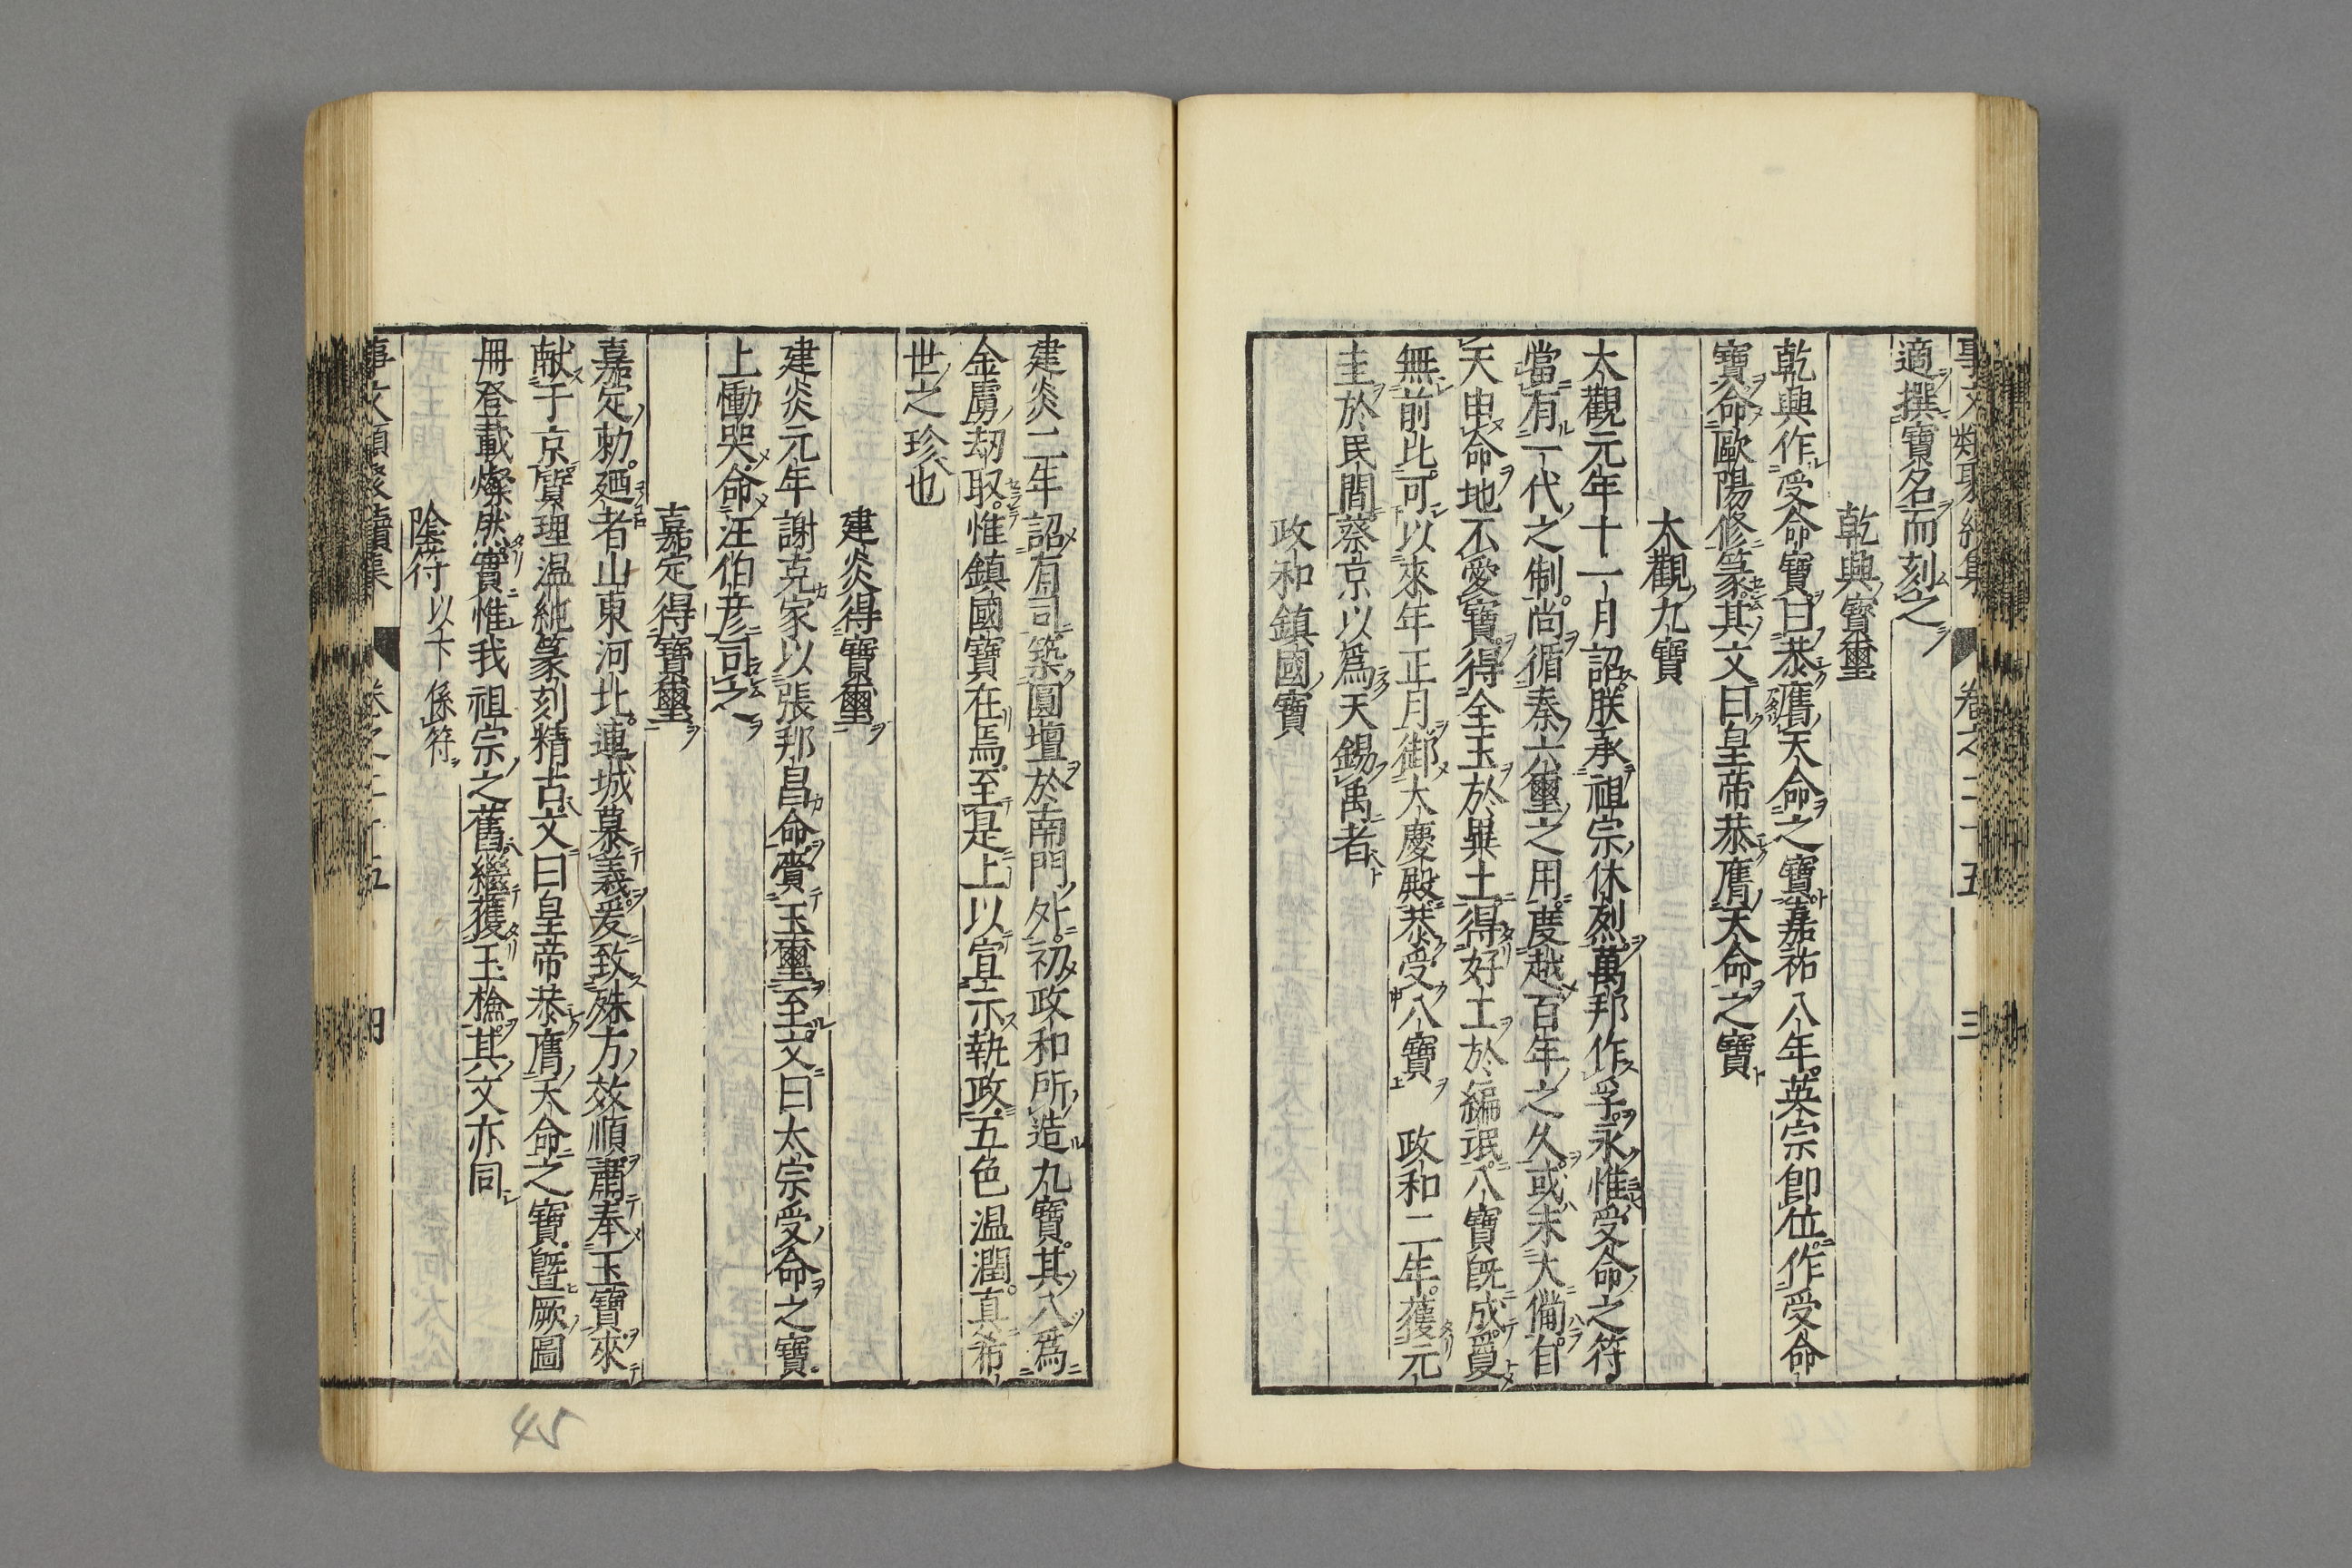 適撰寶名而刻之
乾興寶璽
乾興作受命寶曰恭膺天命之寶嘉祐八年英宗卽位作受命
寶命歐陽修篆其文曰皇帝恭膺天命之寶
太觀九寶
太觀元年十一月詔朕承祖宗休烈萬邦作孚永惟受命之符
當有一代之制尚循秦六璽之用度越百年之久或未大備自
天申命地不愛寶得全玉於異土得好工於編氓八寶旣成夐
無前比可以來年正月御大慶殿恭受八寶 政和二年獲元
圭於民間蔡京以爲天錫禹者
政和鎮國寶
建炎二年詔有司築圓壇於南門外初政和所造九寶其八爲
金虜刼取惟鎮國寶在焉至是上以宣示執政五色温潤真希
世之珍也
建炎得寶璽
建炎元年謝克家以張邦昌命賫玉璽至文曰太宗受命之寶
上慟哭命汪伯彦司之
嘉定得寶璽
嘉定勅廼者山東河北連城慕義爰致殊方效順肅奉玉寶來
献于京質理温純篆刻精古文曰皇帝恭膺天命之寶曁厥圖
冊登載燦然實惟我祖宗之舊繼獲玉檢其文亦同
陰符 以下係符